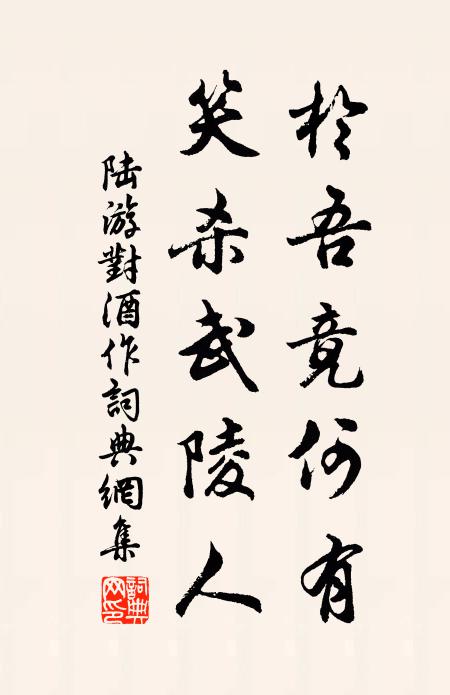 於吾竟何有
笑杀武陵人
陆游對酒作詞典網集
詞典網印